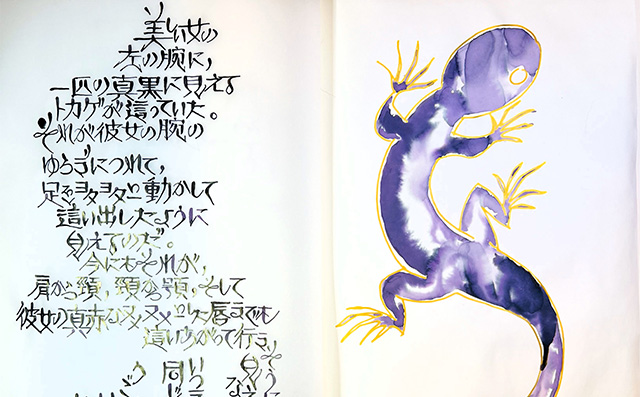 美しい女の
左の腕に，
一匹の真黒に見える
トカゲが這っていた。
それが彼女の腕の
ゆらぎにつれて，
足をヨタヨタと動かして
這い出したように
見えたのだ。
今にもそれが，
肩から頸，頸から顎，そして
彼女の真赤なヌメヌメとした唇までも
這いあがって行きそ